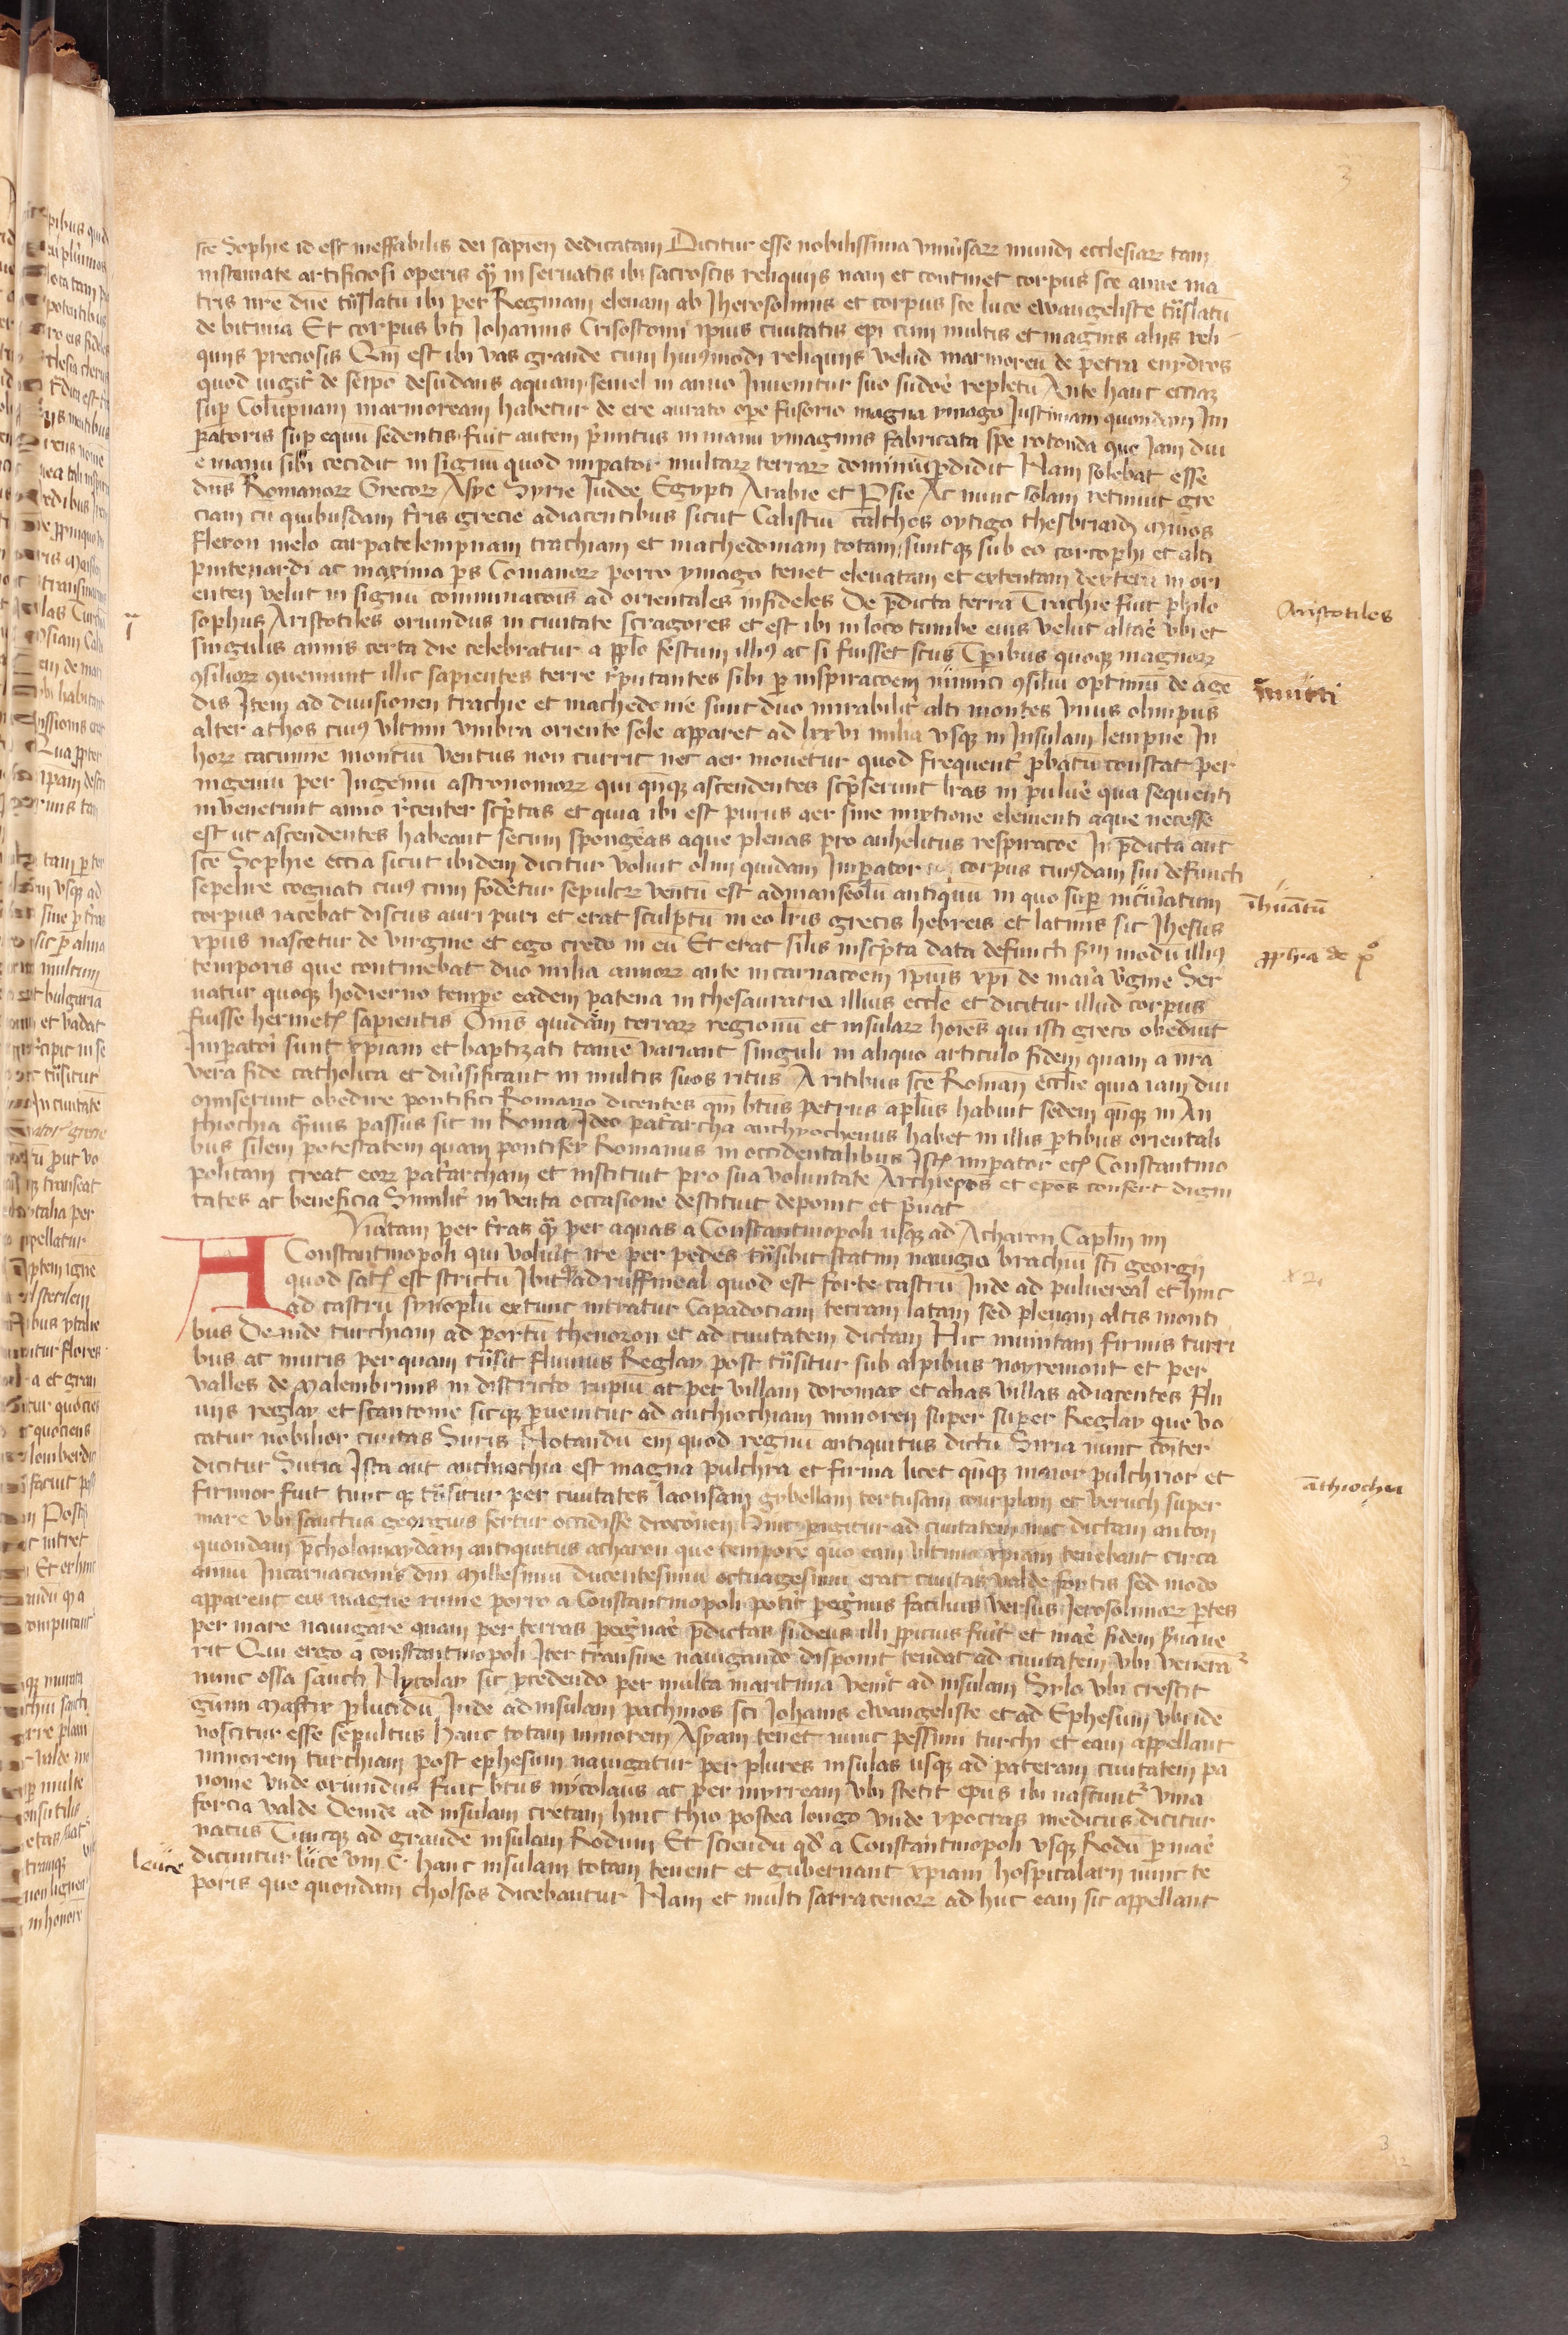 3
sce Sophie id est ineffabilis dei sapien dedicatam Dicitur esse nobilissima vniusarꝝ mundi ecclesiarꝝ tam
in scemate artificiosi operis qͣ in seruatis ibi sacroscis reliquijs nam et continet corpus sce anne ma
tris nre dne tͣnslatu ibi per Reginam elenam ab Jherosolimis et corpus sce luce ewangeliste tͣnslatu
de bitinia Et corpus bti Johannis Crisostomi ipius ciuitatis epi cum multis et magnis alijs reli
quijs preciosis Qm̄ est ibi vas grande cum huiꝰmodi reliquijs velud marmoreū de petra enydros
quod iugit̉ de seipō desudans aquam semel in anno Inuenitur suo sudoē repletū Ante hanc ecciaꝫ
sup Columpnam marmoream habetur de ere aurato ope fusorio magna ymago Justiniani quondam Im
patoris sup equū sedentis fuit autem p̄mitus in manu ymaginis fabricata spe rotonda que Jam diu
e manu sibi cecidit in signū quod impator multarꝝ terrarꝝ dominiū pdidit Nam solebat esse
dns Romanorꝝ Grecorꝝ Asye Syrie Judee Egypti Arabie et Psie Ac nunc solam retinuit gre
ciam cū quibusdam tris grecie adiacentibus sicut Calistiū calthos oytigo thesbriam minos
fleron melo carpate lempnam trachiam et machedoniam totam suntqꝫ sub eo corcophi et alti
pintenardi ac maxima ps Comanorꝝ porro ymago tenet eleuatam et extentam dexteram in ori
enten velut in signū comminacōis ad orientales infideles De p̄dicta terra Trachie fuit philo
sophus Aristotiles oriundus in ciuitate stragores et est ibi in loco tumbe eius velut altaē vbi et
singulis annis certa die celebratur a pplo festum illiꝰ ac si fuisset scus Cp̄ibus quoqꝫ magnorꝝ
ꝯsiliorꝝ ꝯueniunt illic sapientes terre r̄putantes sibi p inspiracōem inmitti ꝯsiliū optimū de agē
dis Item ad diuisionen trachie et machedonie sunt duo mirabilit̉ alti montes vnus olimpus
alter athos cuiꝰ vltimi vmbra oriente sole apparet ad lxxvi milia vsqꝫ in Insulam lempne In
horꝝ cacumine montiū ventus non currit nec aer mouetur quod frequent̉ p̄batū constat per
ingeniū per Ingeniū astronomorꝝ qui qn̄qꝫ ascendentes sc̄pserunt lras in puluē qua sequenti
invenerunt anno r̄center sc̄ptas et quia ibi est purus aer sine mixtione elementi aque necesse
est ut ascendentes habeant secum spongeas aque plenas pro anhelitus respiracōe In p̄dicta aūt
sce Sophie eccia sicut ibidem dicitur voluit olim quidam Imperator corpus cuiꝰdam sui defuncti
sepelire cognati cuiꝰ cum foderetur sepulcrꝝ ventū est ad manseolū antiquū in quo super incineratum
corpus iacebat discus auri puri et erat sculptū in eo lris grecis hebreis et latinis sic Jhesus
xpus nascetur de virgine et ego credo in eū Et erat silis inscp̄ta data defuncti scdm modū illiꝰ
temporis que continebat duo milia annorꝝ ante incarnacōem ipius xpi de maria v̄gine Ser
uatur quoqꝫ hodierno tempe eadem patena in thesauraria illius eccle et dicitur illud corpus
fuisse hermetꝭ sapientis Om̄s quidam terrarꝝ regionū et insularꝝ hoīes qui isti greco obediūt
Impatori sunt xpiani et baptizati tamē variant singuli in aliquo articulo fidem quam a nra
vera fide catholica et diūsificant in multis suos ritus A ritibus sce Romane Ecclie quia iam diu
omiserunt obedire pontifici Romano dicentes qm̄ btus petrus aplus habuit sedem qn̄qꝫ in An
thiochia qͣuis passus sit in Roma Ideo pat̄archa anthyochenus habet in illis p̄tibus orientali
bus silem potestatem quam pontifex Romanus in occidentalibus Istꝭ imperator ecꝭ Constantino
politani creat eorꝝ pat̄archam et instituit pro sua voluntate Archiepos et epos confert digni
tates ac beneficia Similit̉ in venta occasione destituit deponit et p̄uat
Viatam per tras qͣ per aquas a Constantinopoli usqꝫ ad Acharon Caplm iiii
A Constantinopoli qui voluit ire per pedes tͣnsibit statim nauigio brachiū sci georgij
quod satꝭ est strictū Ibitqꝫ ad ruffineal quod est forte castrū Inde ad puluereal et hinc
ad castrū synoplū extunc intratur Capadociam terram latam sed plenam altis monti
bus Deinde turchiam ad portū thenoron et ad ciuitatem dictam Hic munitam firmis turri
bus ac muris per quam tͣnsit fluuius Reglay post tͣnsitur sub alpibus noyremont et per
valles de malembrinis in districto rupiū ac per villam doromay et alias villas adiacentes flu
uijs reglay et scantonie sicqꝫ puenitur ad anthiochiam minorē super super Reglay que vo
catur nobilior ciuitas Siris Notandū em̄ quod regnū antiquitus dictū Siria nunc cōiter
dicitur Suria Ista aūt anthiochia est magna pulchra et firma licet qn̄qꝫ maior pulchrior et
firmior fuit tunc qꝫ tͣnsitur per ciuitates laonsam gybellam tortusam courplam et beruch super
mare vbi sanctus georgius fertur occidisse draconen Hinc pgitur ad ciuitatem nūc dictam acon
quondam p̄tholomaydam antiquitus acharon que tempore quo eam vltimo xpiani tenebant circa
annū Incarnacionis dni Millesimū ducentesimū octuagesimū erat ciuitas valde fortis sed modo
apparent eis magne ruine porro a Constantinopoli potit̉ peḡnus facilius versus Jerosolimaꝝ ptes
per mare nauigare quam per terras peḡnaē p̄dictas si deus illi p̄picius fuit et maē fidem s̄uaue
rit Qui ergo a constantinopoli Iter transire nauigando disponit tendat ad ciuitatem vbi venerāt̉
nunc ossa sancti Nycolay sic p̄cedendo per multa maritima venit ad insulam Sylo vbi crescit
gummi mastix plucidū Inde ad insulam pachmos sci Johanis ewangeliste et ad Ephesum vbi ide
noscitur esse sepultus hanc totam minorem Asyam tenet nunc pessimi turchi et eam appellant
minorem turchiam post ephesum nauigatur per plures insulas usqꝫ ad pateram ciuitatem pa
nome vnde oriundus fuit btus nycolaus ac per myrream vbi stetit epus ibi nascunt̉ vina
forcia valde Deinde ad insulam cretam hinc thio postea longo vnde ypocras medicus dicitur
natus Tuncqꝫ ad grande insulam Rodum Et sciendū qd̄ a Constantinopoli vsqꝫ Rodū p maē
dicuntur luce viij C hanc insulam totam tenent et gubernant xpiani hospitalarij nunc tē
poris que quondam cholsos dicebantur Nam et multi sarracenorꝝ ad huc eam sic appellant
Aristotiles
Inmitti
phia de xͦ
āthiochia
leuce
3